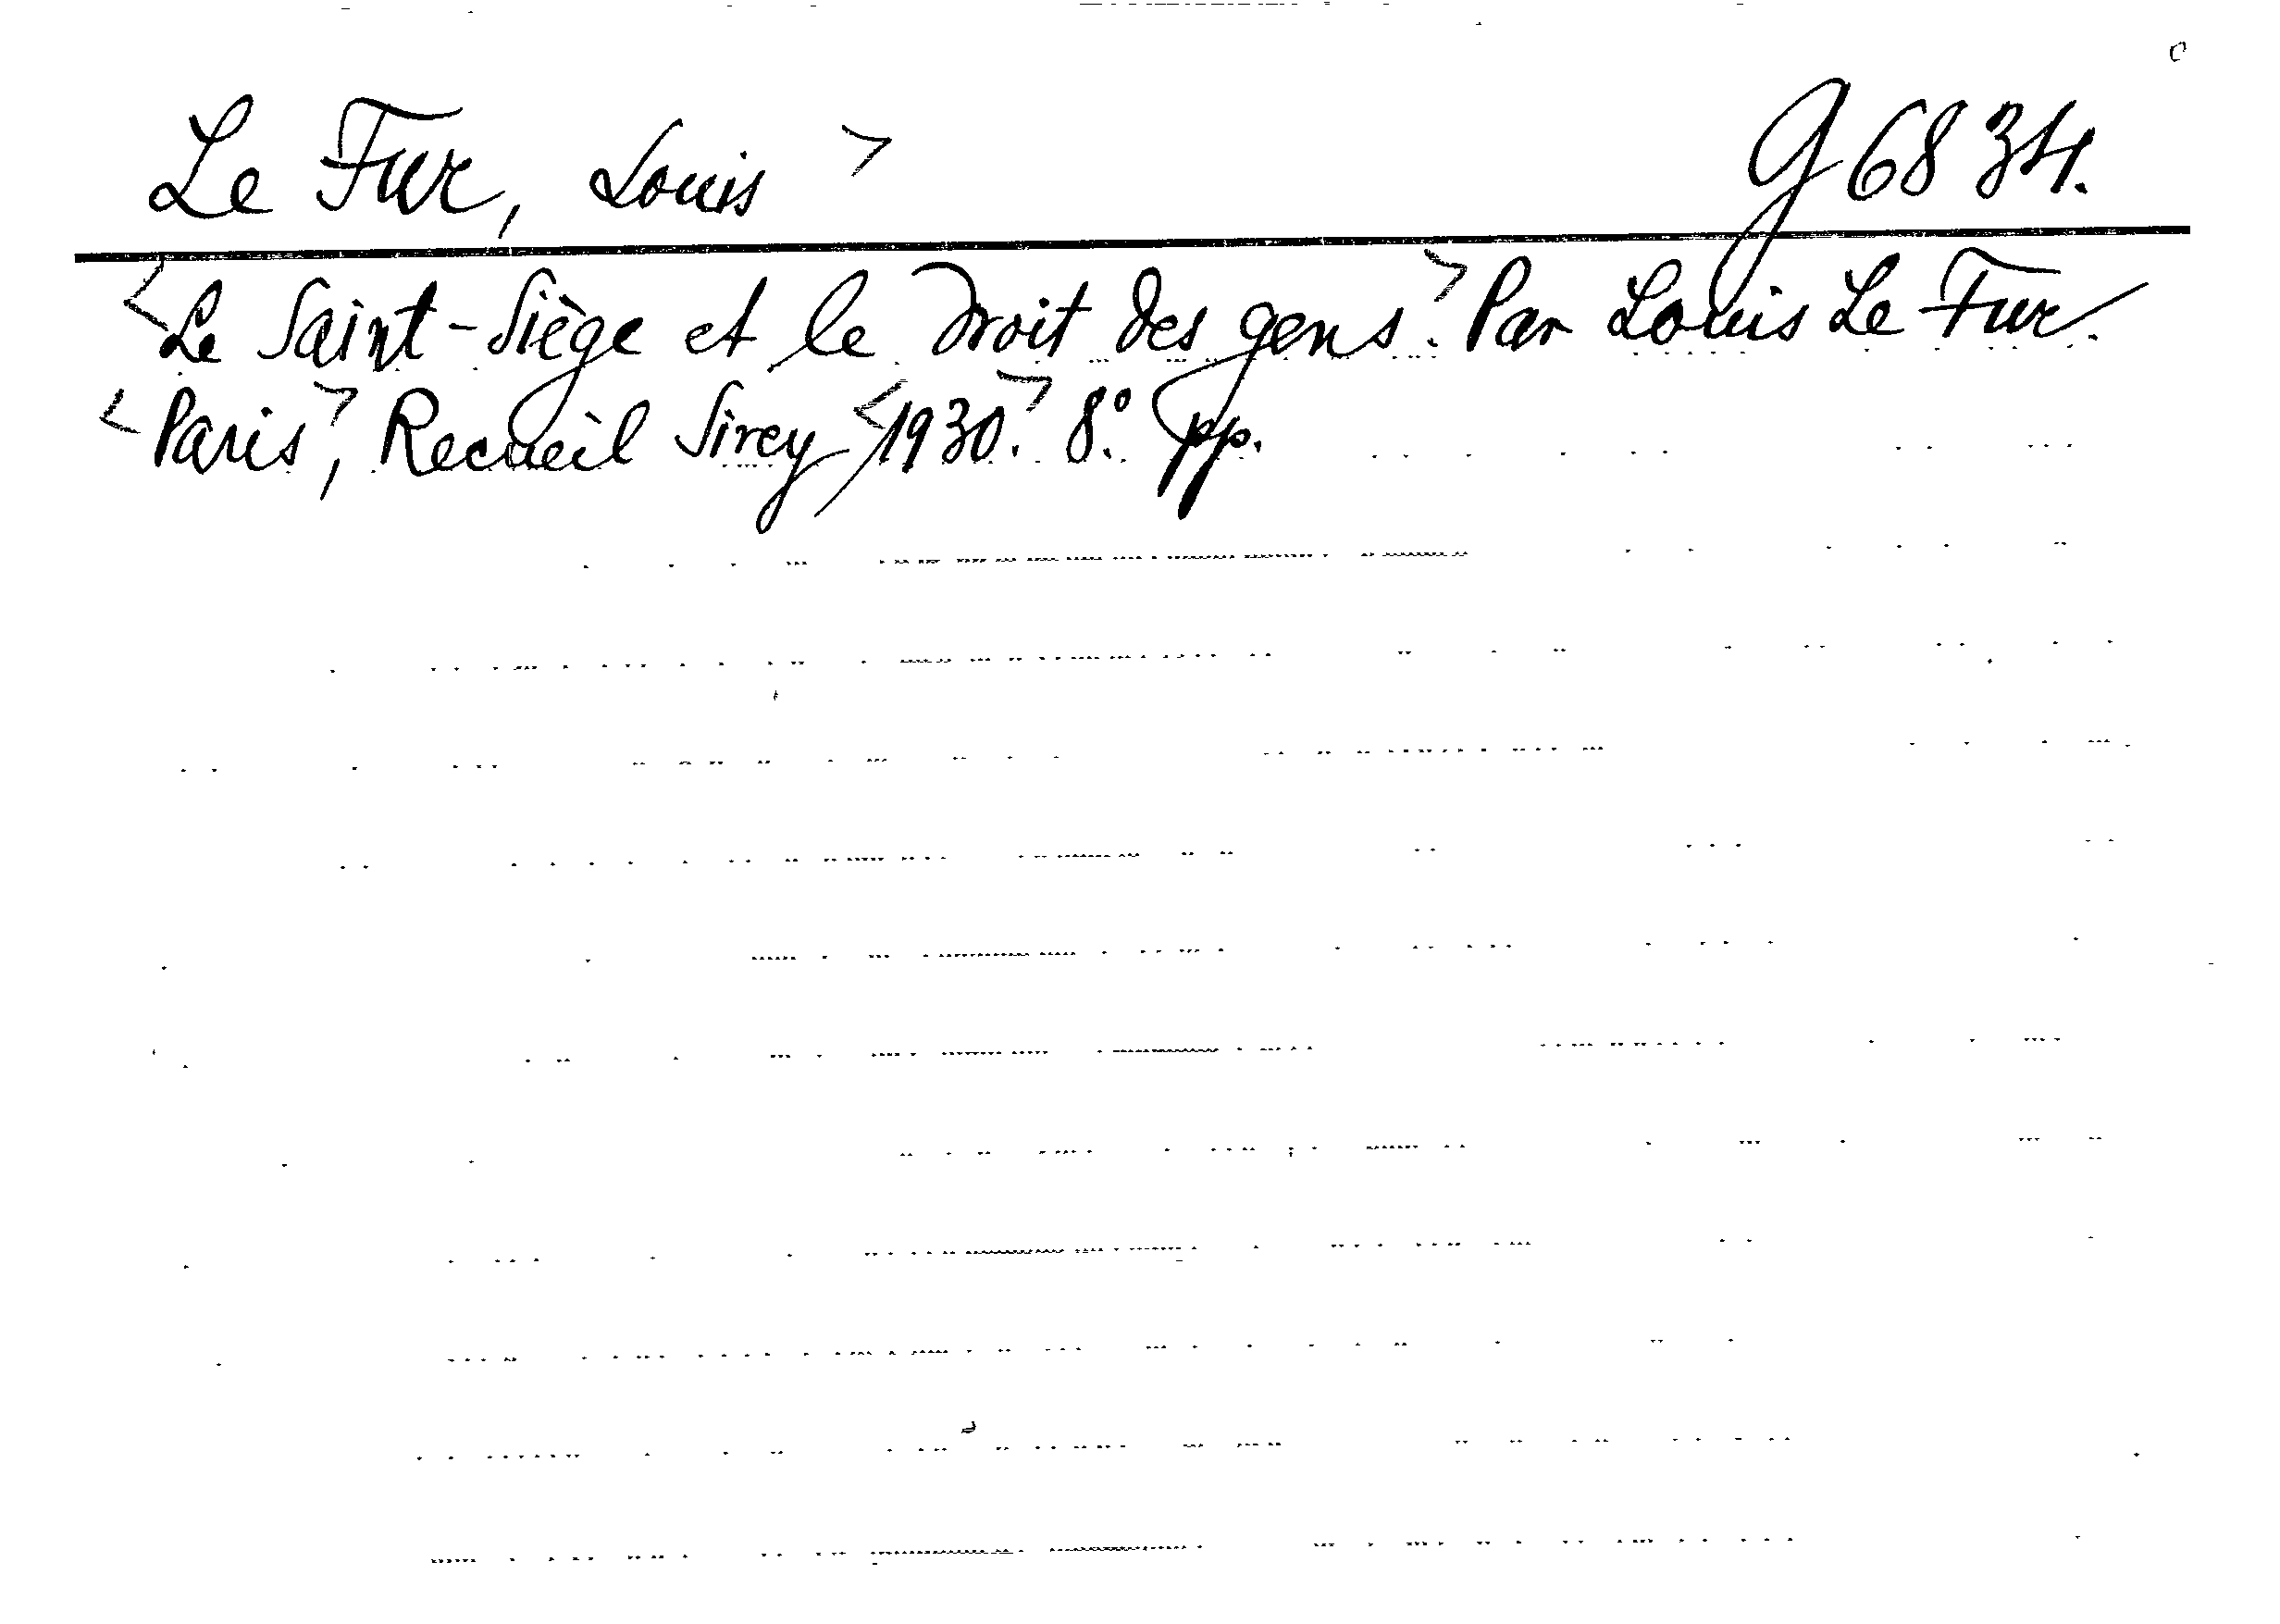 Le Fur, Louis> g 6834.
<Le Saint-Siège et le droit des gens.> Par Louis Le Fur.
<Paris>, Recueil Sirey, <1930.> 8°. pp.